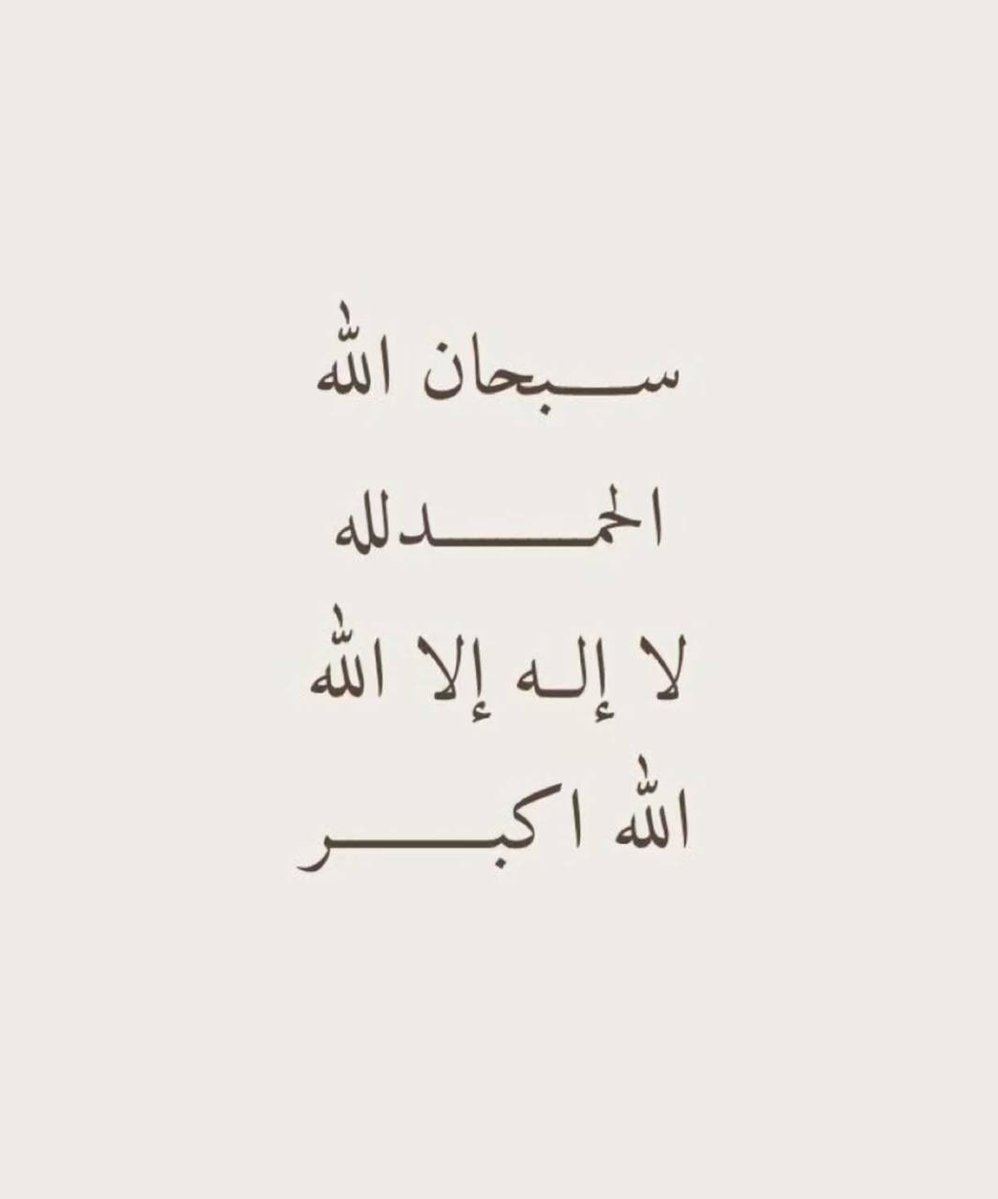 سبحان الله
الحمدلله
لا إله إلا الله
الله اكبر